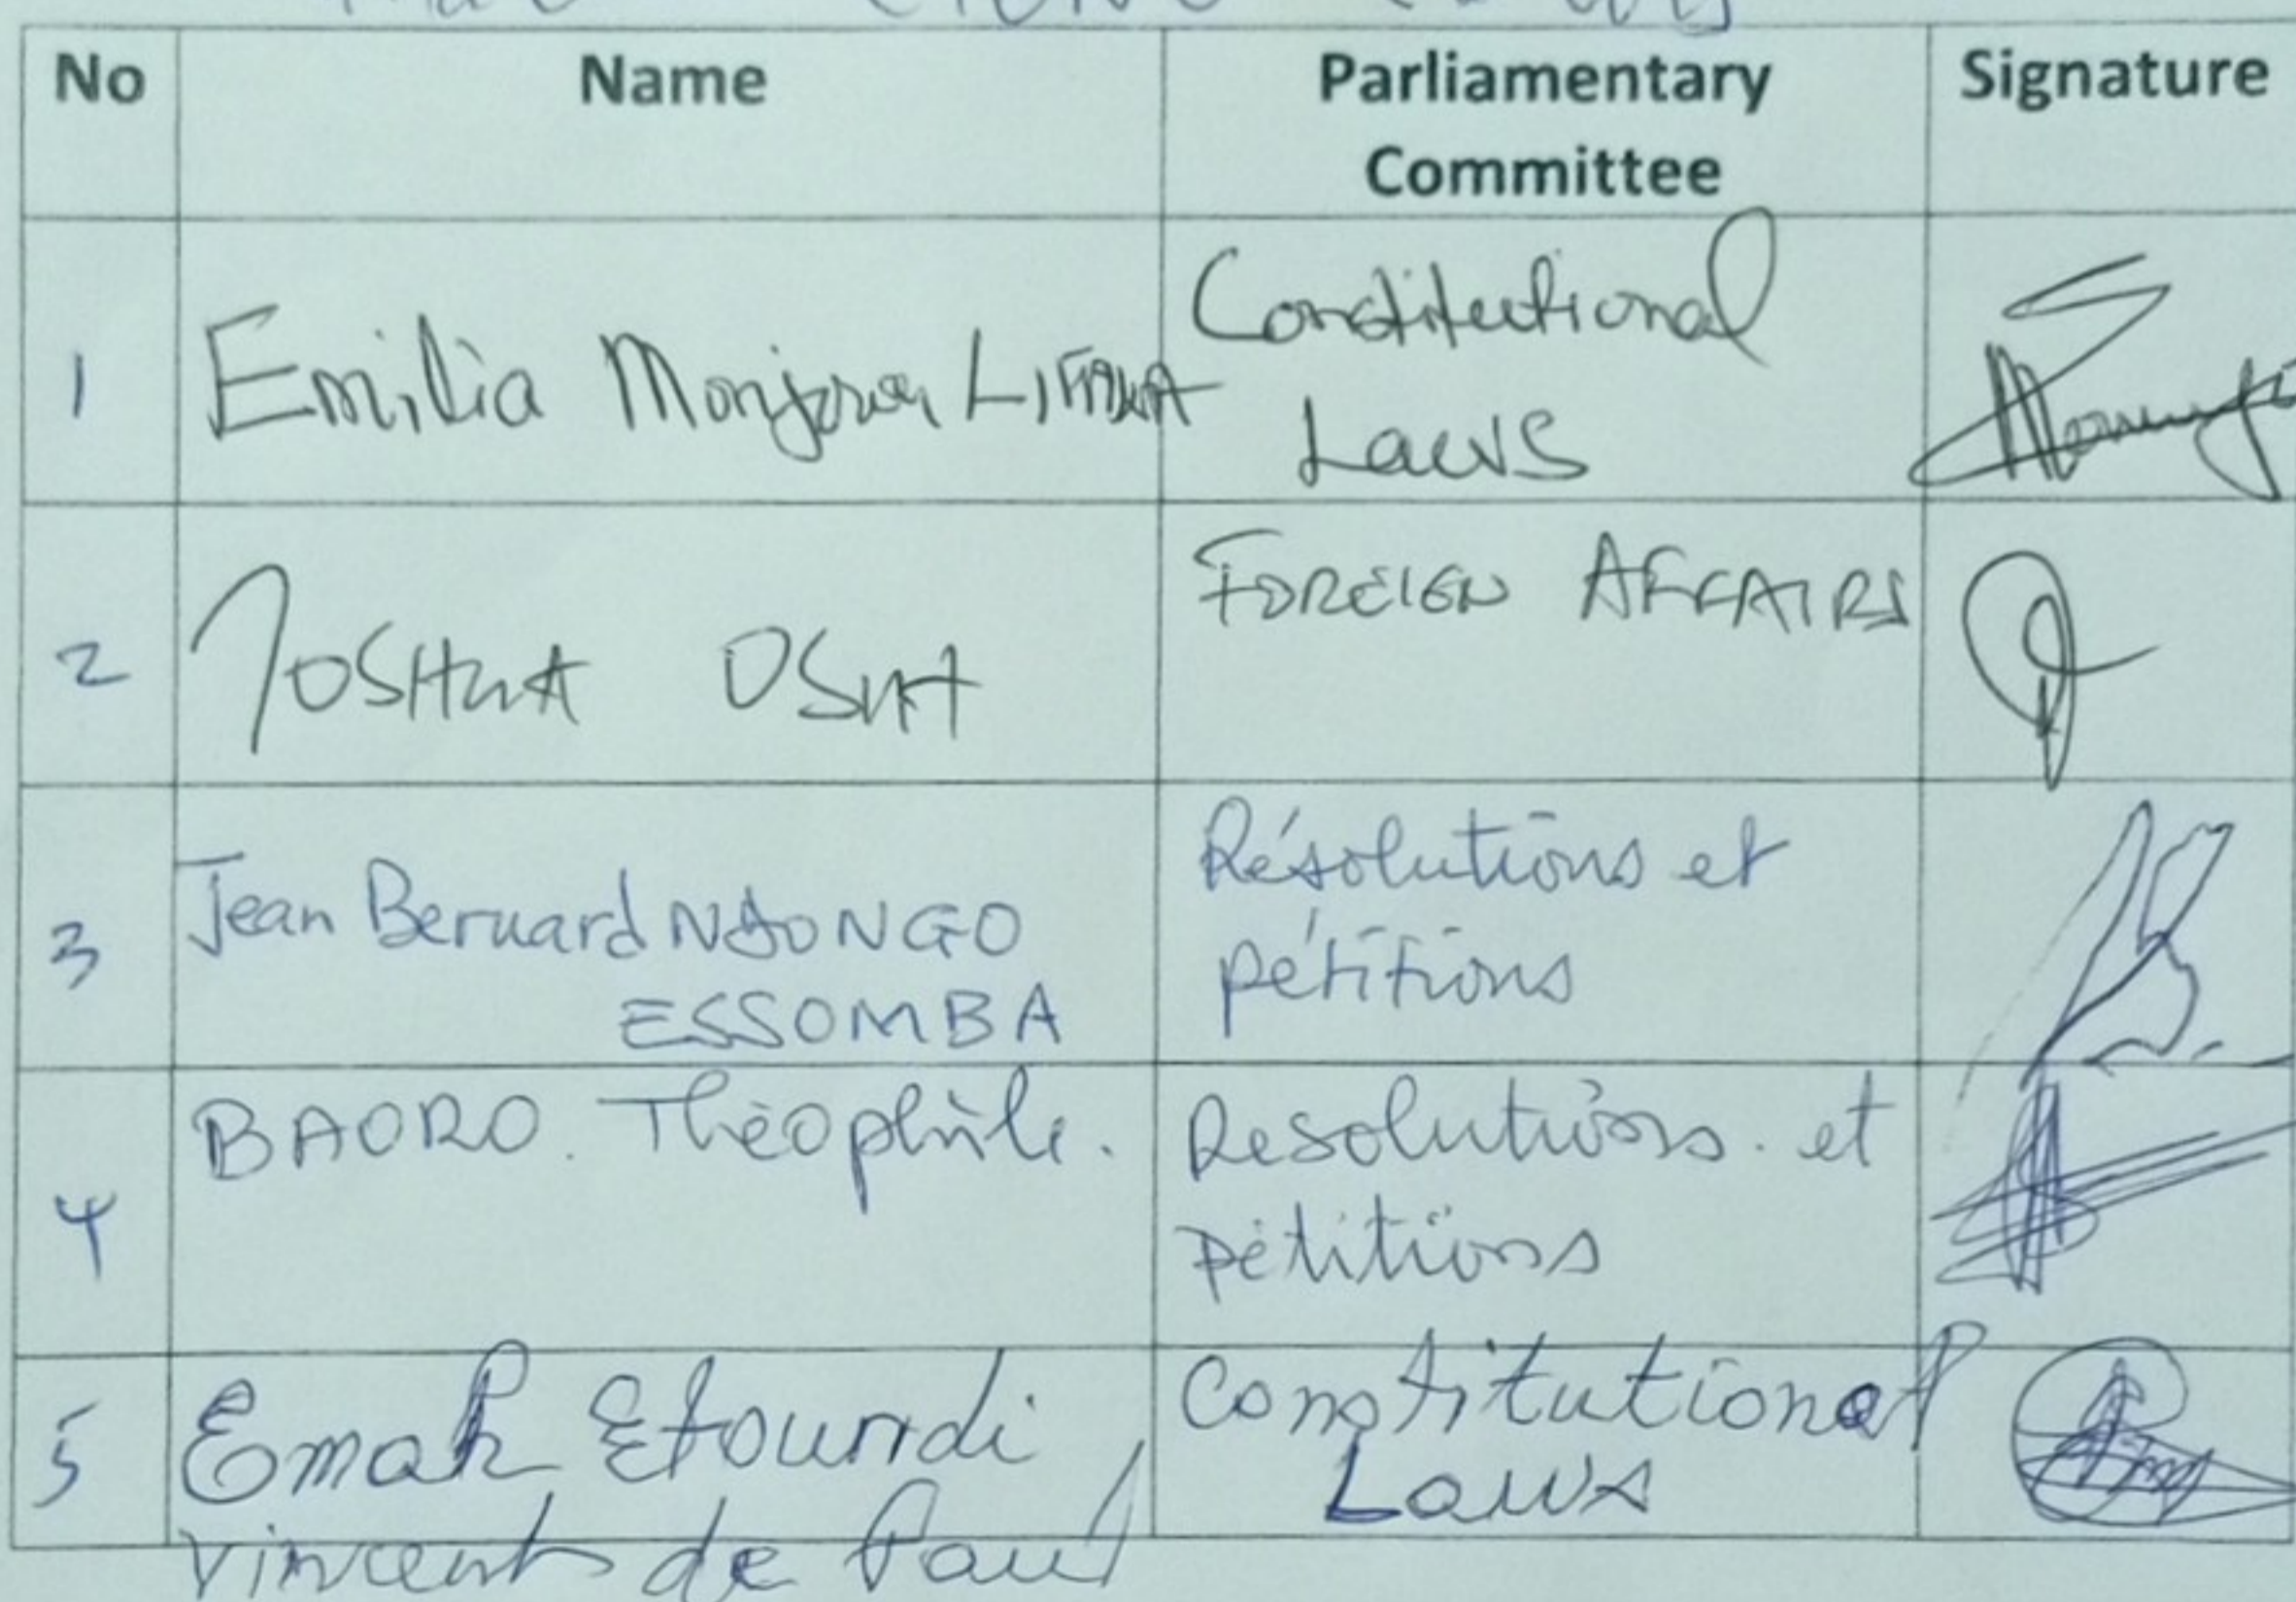 No Name Parliamentary Committee Signature
1 Emilia Monjowa LIFAKA Constitutional Laws
2 JOSHUA OSIH FOREIGN AFFAIRS
3 Jean Bernard NDONGO ESSOMBA Résolutions et pétitions
4 BAORO. Théophile. Resolutions. et pétitions
5 Emah Etoundi Vincent de Paul Constitutional Laws